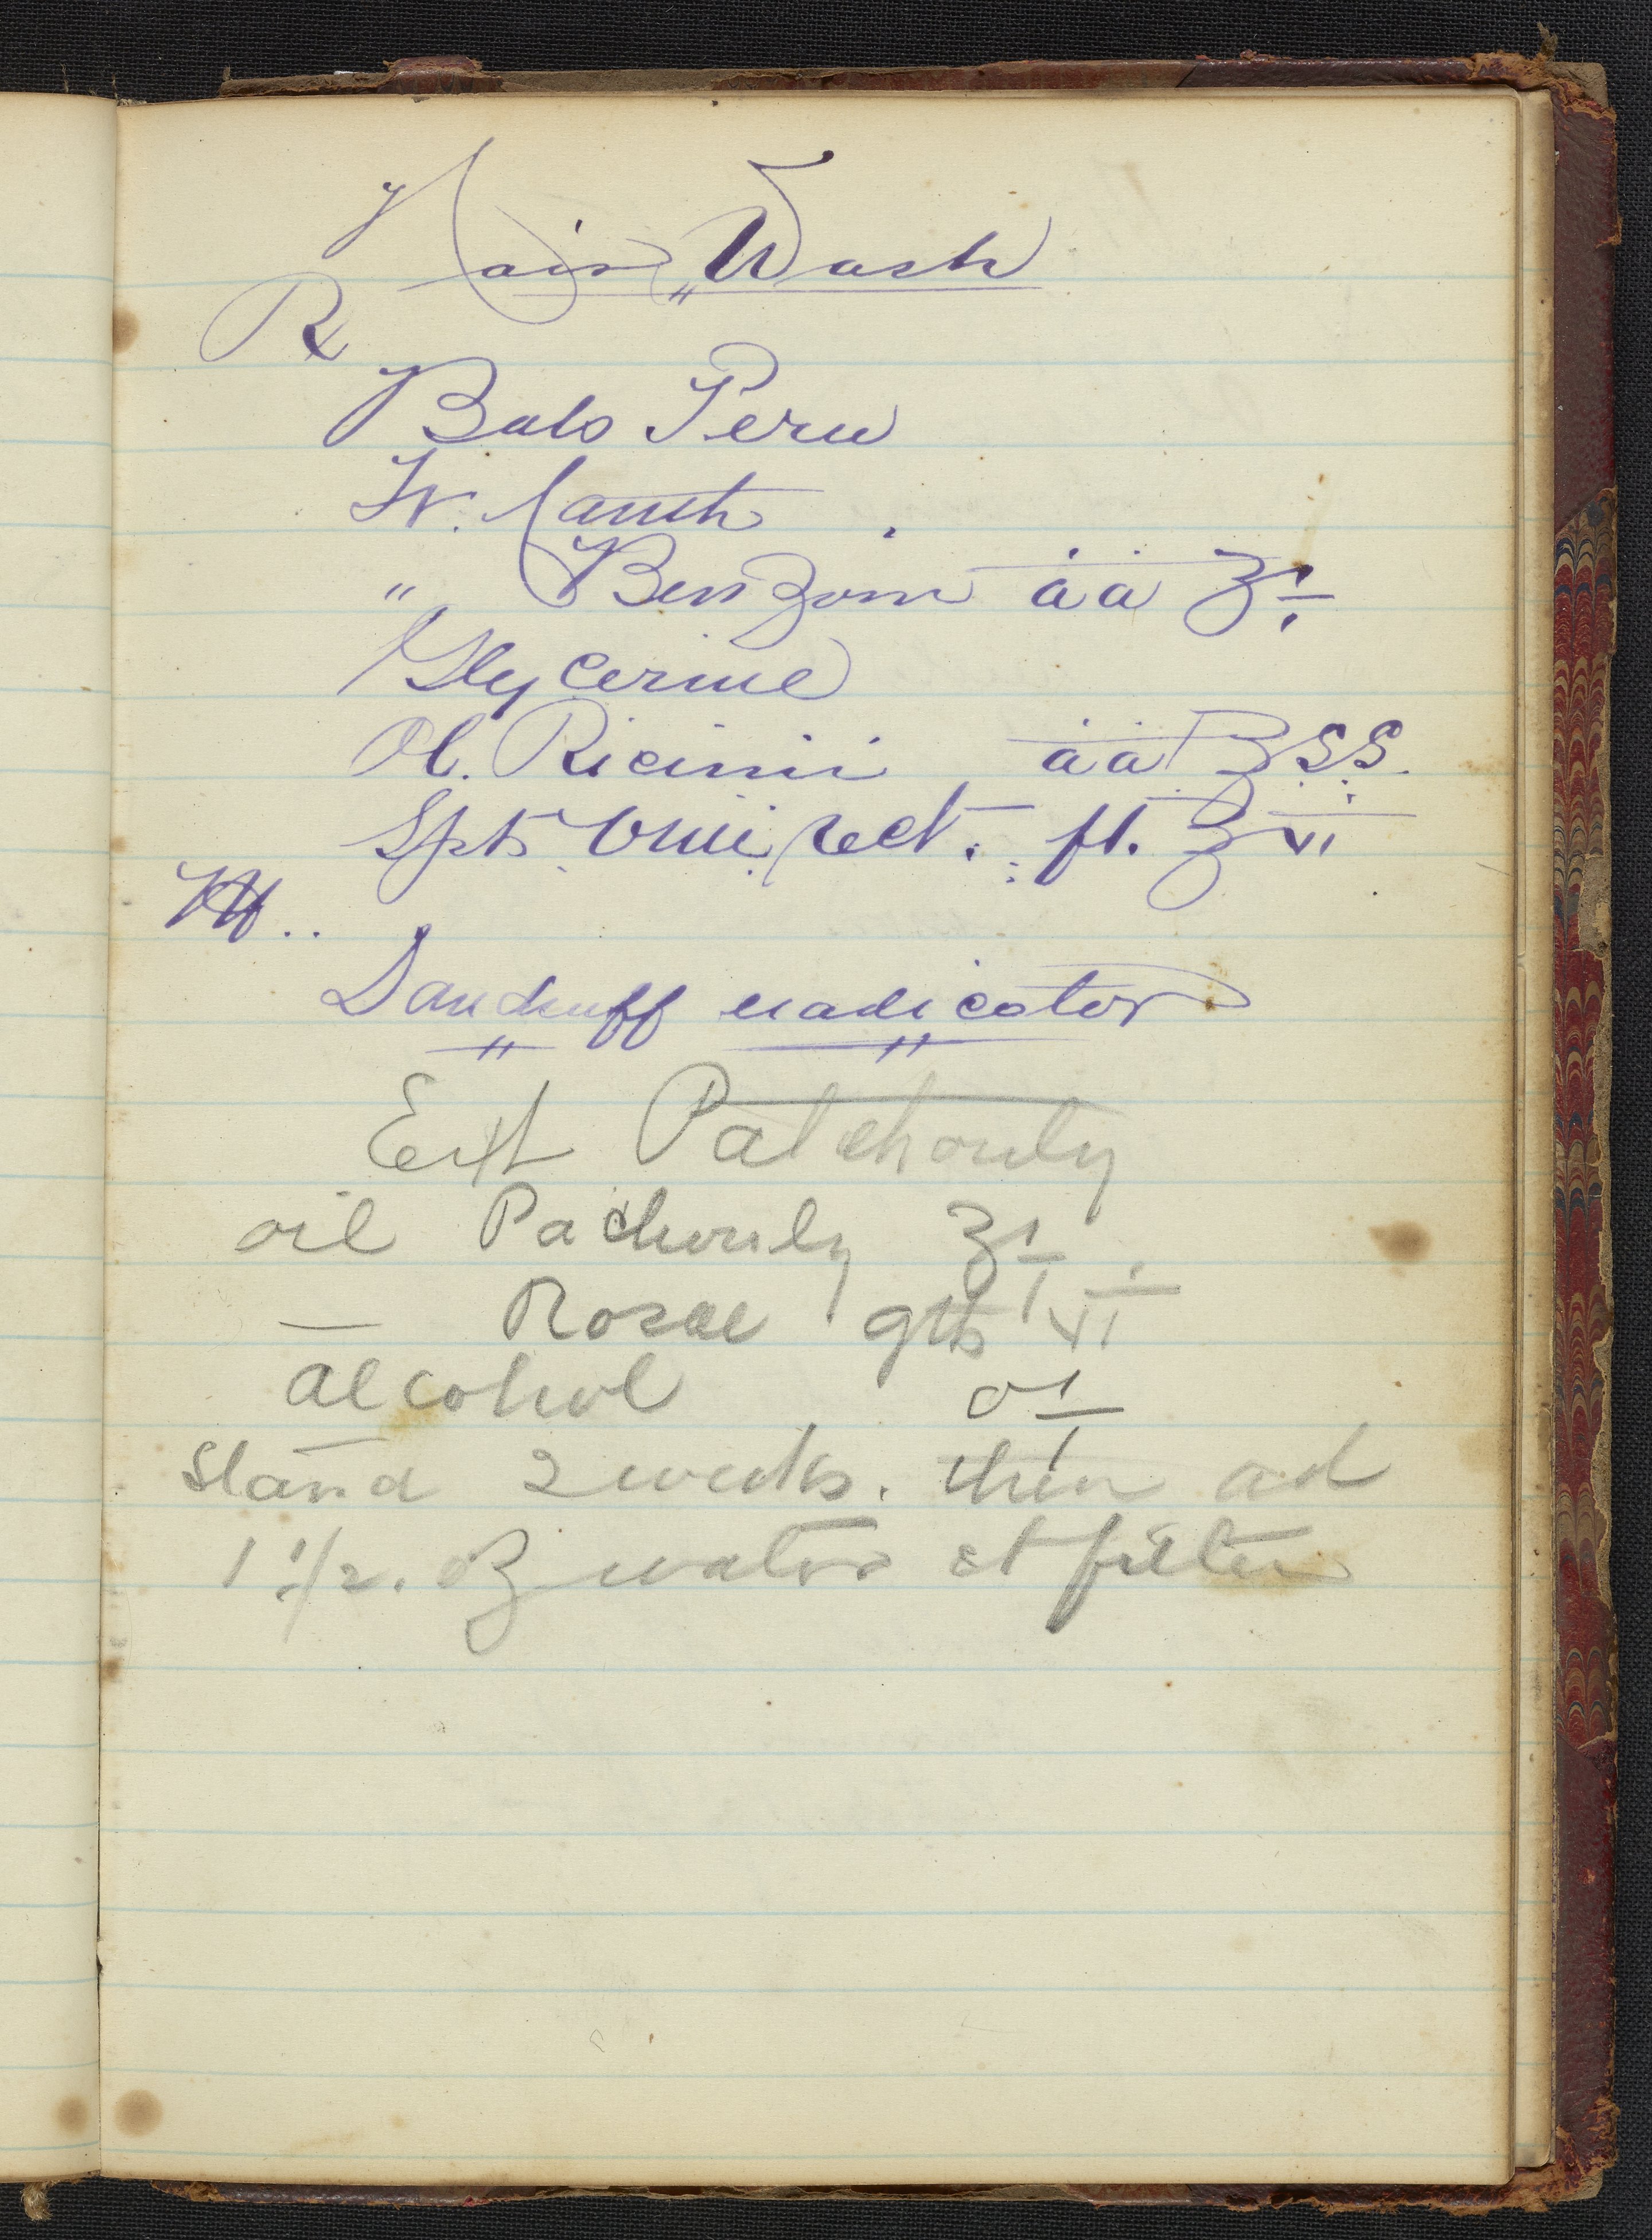 Hair Wash
℞
Bals Peru
Tr. Canth
" Benzoin āā ʒi
Glycerine
Ol. Ricinii āā ℥ss
Spts Vini rect. ft. ℥vi
M..
Dandruff eradicator
Ext Patchouly
oil Pachouly ʒi
— Rosae gtts vi
alcohol Oi
stand 2 weeks. then ad
1 1/2. oz water et filter